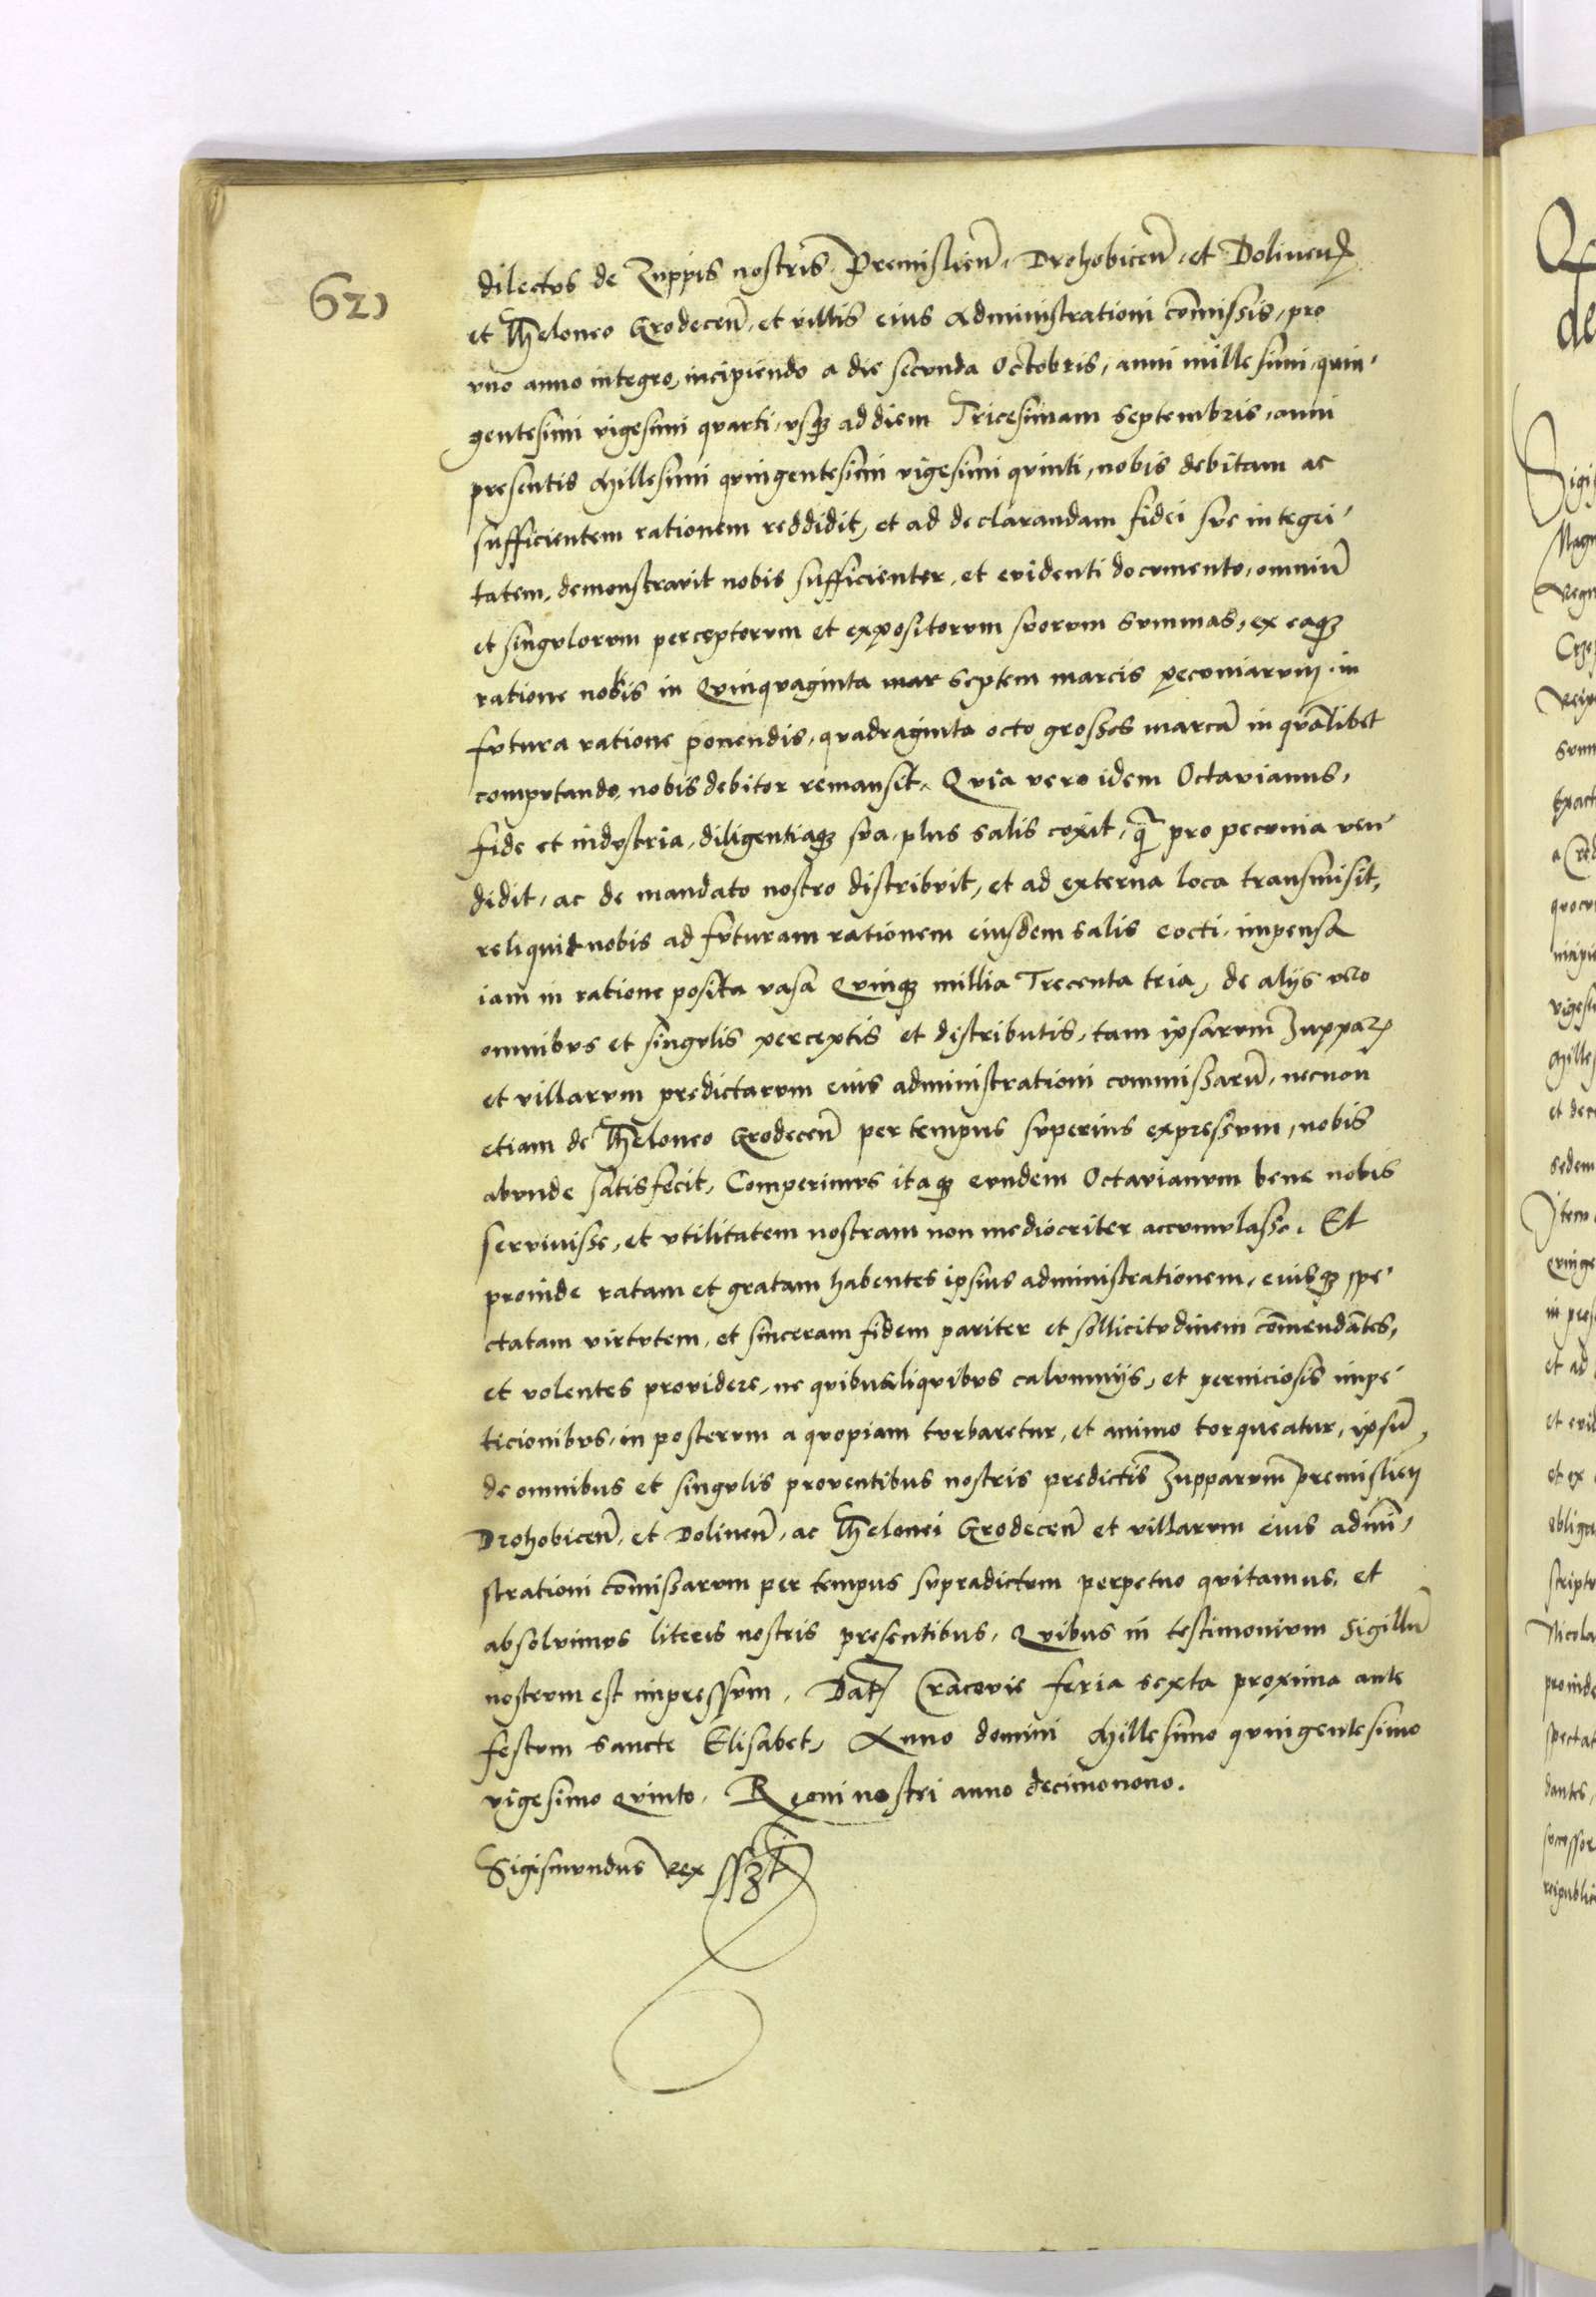 621
dilectus de Zuppis nostris Premislien̄, Drohobicen̄, et Dolinen̄
et Theloneo Grodecen̄, et villis eius administrationi com̄issis, pro
vno anno integro, incipiendo a die secunda Octobris, anni millesimi, quin-
gentesimi vigesimi quarti, vsqꝫ ad diem Tricesimam Septembris, anni
presentis Millesimi quingentesimi vigesimi quinti, nobis debitam ac
sufficientem rationem reddidit, et ad declarandam fidei sue integri-
tatem, demonstravit nobis sufficienter, et evidenti documento, omniū
et singulorum perceptorum et expositorum suorum summas, ex eaqꝫ
ratione nobis in Quinquaginta mar septem marcis pecuniarum in
futura ratione ponendis, quadraginta octo grossos marcā in quālibet
computando, nobis debitor remansit. Quia vero idem Octavianus,
fide et industria, diligentiaqꝫ sua, plus salis coxit, q̄ pro pecunia ven-
didit, ac de mandato nostro distribuit, et ad externa loca transmisit,
reliquit nobis ad futuram rationem eiusdem salis cocti, impensa
iam in ratione posita vasa Quinqꝫ millia Trecenta tria, de alijs vero
omnibus et singulis perceptis et distributis, tam ipsarum Zuppaꝝ
et villarum predictarum eius administrationi commissarū, necnon
etiam de Theloneo Grodecen̄ per tempus superius expressum, nobis
abunde satisfecit, Comperimus itaqꝫ eundem Octavianum bene nobis
servivisse, et vtilitatem nostram non mediocriter accumulasse. Et
proinde ratam et gratam habentes ipsius administrationem, eiusqꝫ spe-
ctatam virtutem, et sinceram fidem pariter et sollicitudinem com̄endātes,
et volentes providere, ne quibusaliquibus calumnijs, et perniciosis impe-
ticionibus, in posterum a quopiam turbaretur, et animo torqueatur, ipsū
de omnibus et singulis proventibus nostris predictis Zupparum premislien̄
Drohobicen̄, et Dolinen̄, ac Thelonei Grodecen̄ et villarum eius admi-
strationi com̄issarum per tempus supradictum perpetuo quitamus, et
absolvimus literis nostris presentibus, Quibus in testimonium Sigillū
nostrum est impressum. Dat̄ Cracovie feria sexta proxima ante
festum sancte Elisabet, Anno domini Millesimo quingentesimo
vigesimo Quinto, Regni nostri anno decimonono.
Sigismundus rex sszt